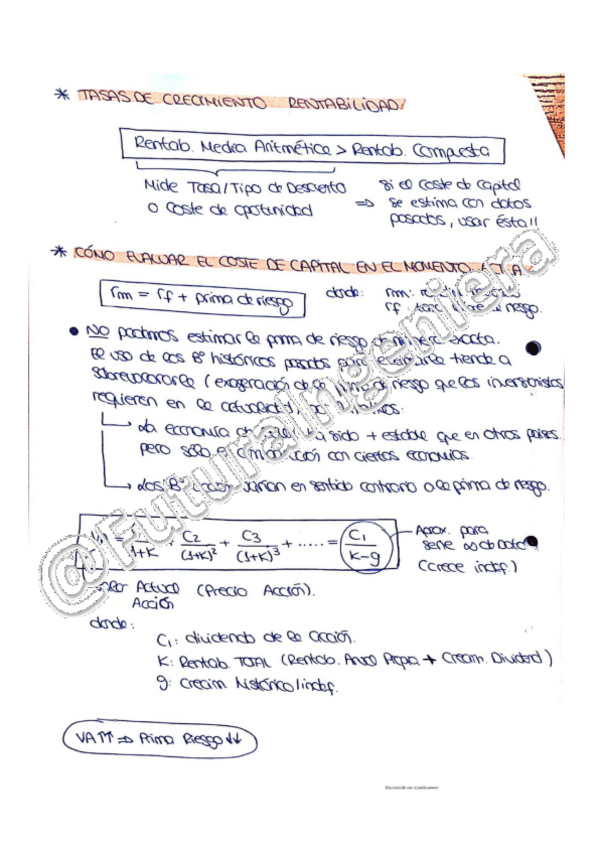 * TASAS DE CRECIMIENTO RENTABILIDAD/
Rentab. Media Aritmética > Rentab. Compuesta
Mide Tasa/Tipo de Descuento
o Coste de oportunidad
⇒
Si el coste de capital
se estima con datos
pasados, usar ésta!!
* CÓMO EVALUAR EL COSTE DE CAPITAL EN EL MOMENTO
rm = rf + prima de riesgo
donde: rm:
rf: riesgo.
• NO podemos estimar la prima de riesgo de manera exacta.
El uso de los Bº históricos pasados para tiende a
sobrevalorarla (exageración de la prima de riesgo que los inversionistas
requieren en la actualidad)
→ La economía ha sido + estable que en otros países.
pero sólo en comparación con ciertas economías.
→ Los Bº varían en sentido contrario a la prima de riesgo.
1+K + C2/(1+K)² + C3/(1+K)³ + ..... = C1/(K-g)
Aprox. para
serie ∞
(Crece indef.)
Actual (Precio Acción).
Acción
donde:
C1: dividendo de la acción.
K: Rentab. TOTAL (Rentab. Anual Propia + Crecim. Dividend)
g: crecim histórico/indef.
VA↑↑ ⇒ Prima Riesgo↓↓
@FuturaIngeniera
Escaneado con CamScanner